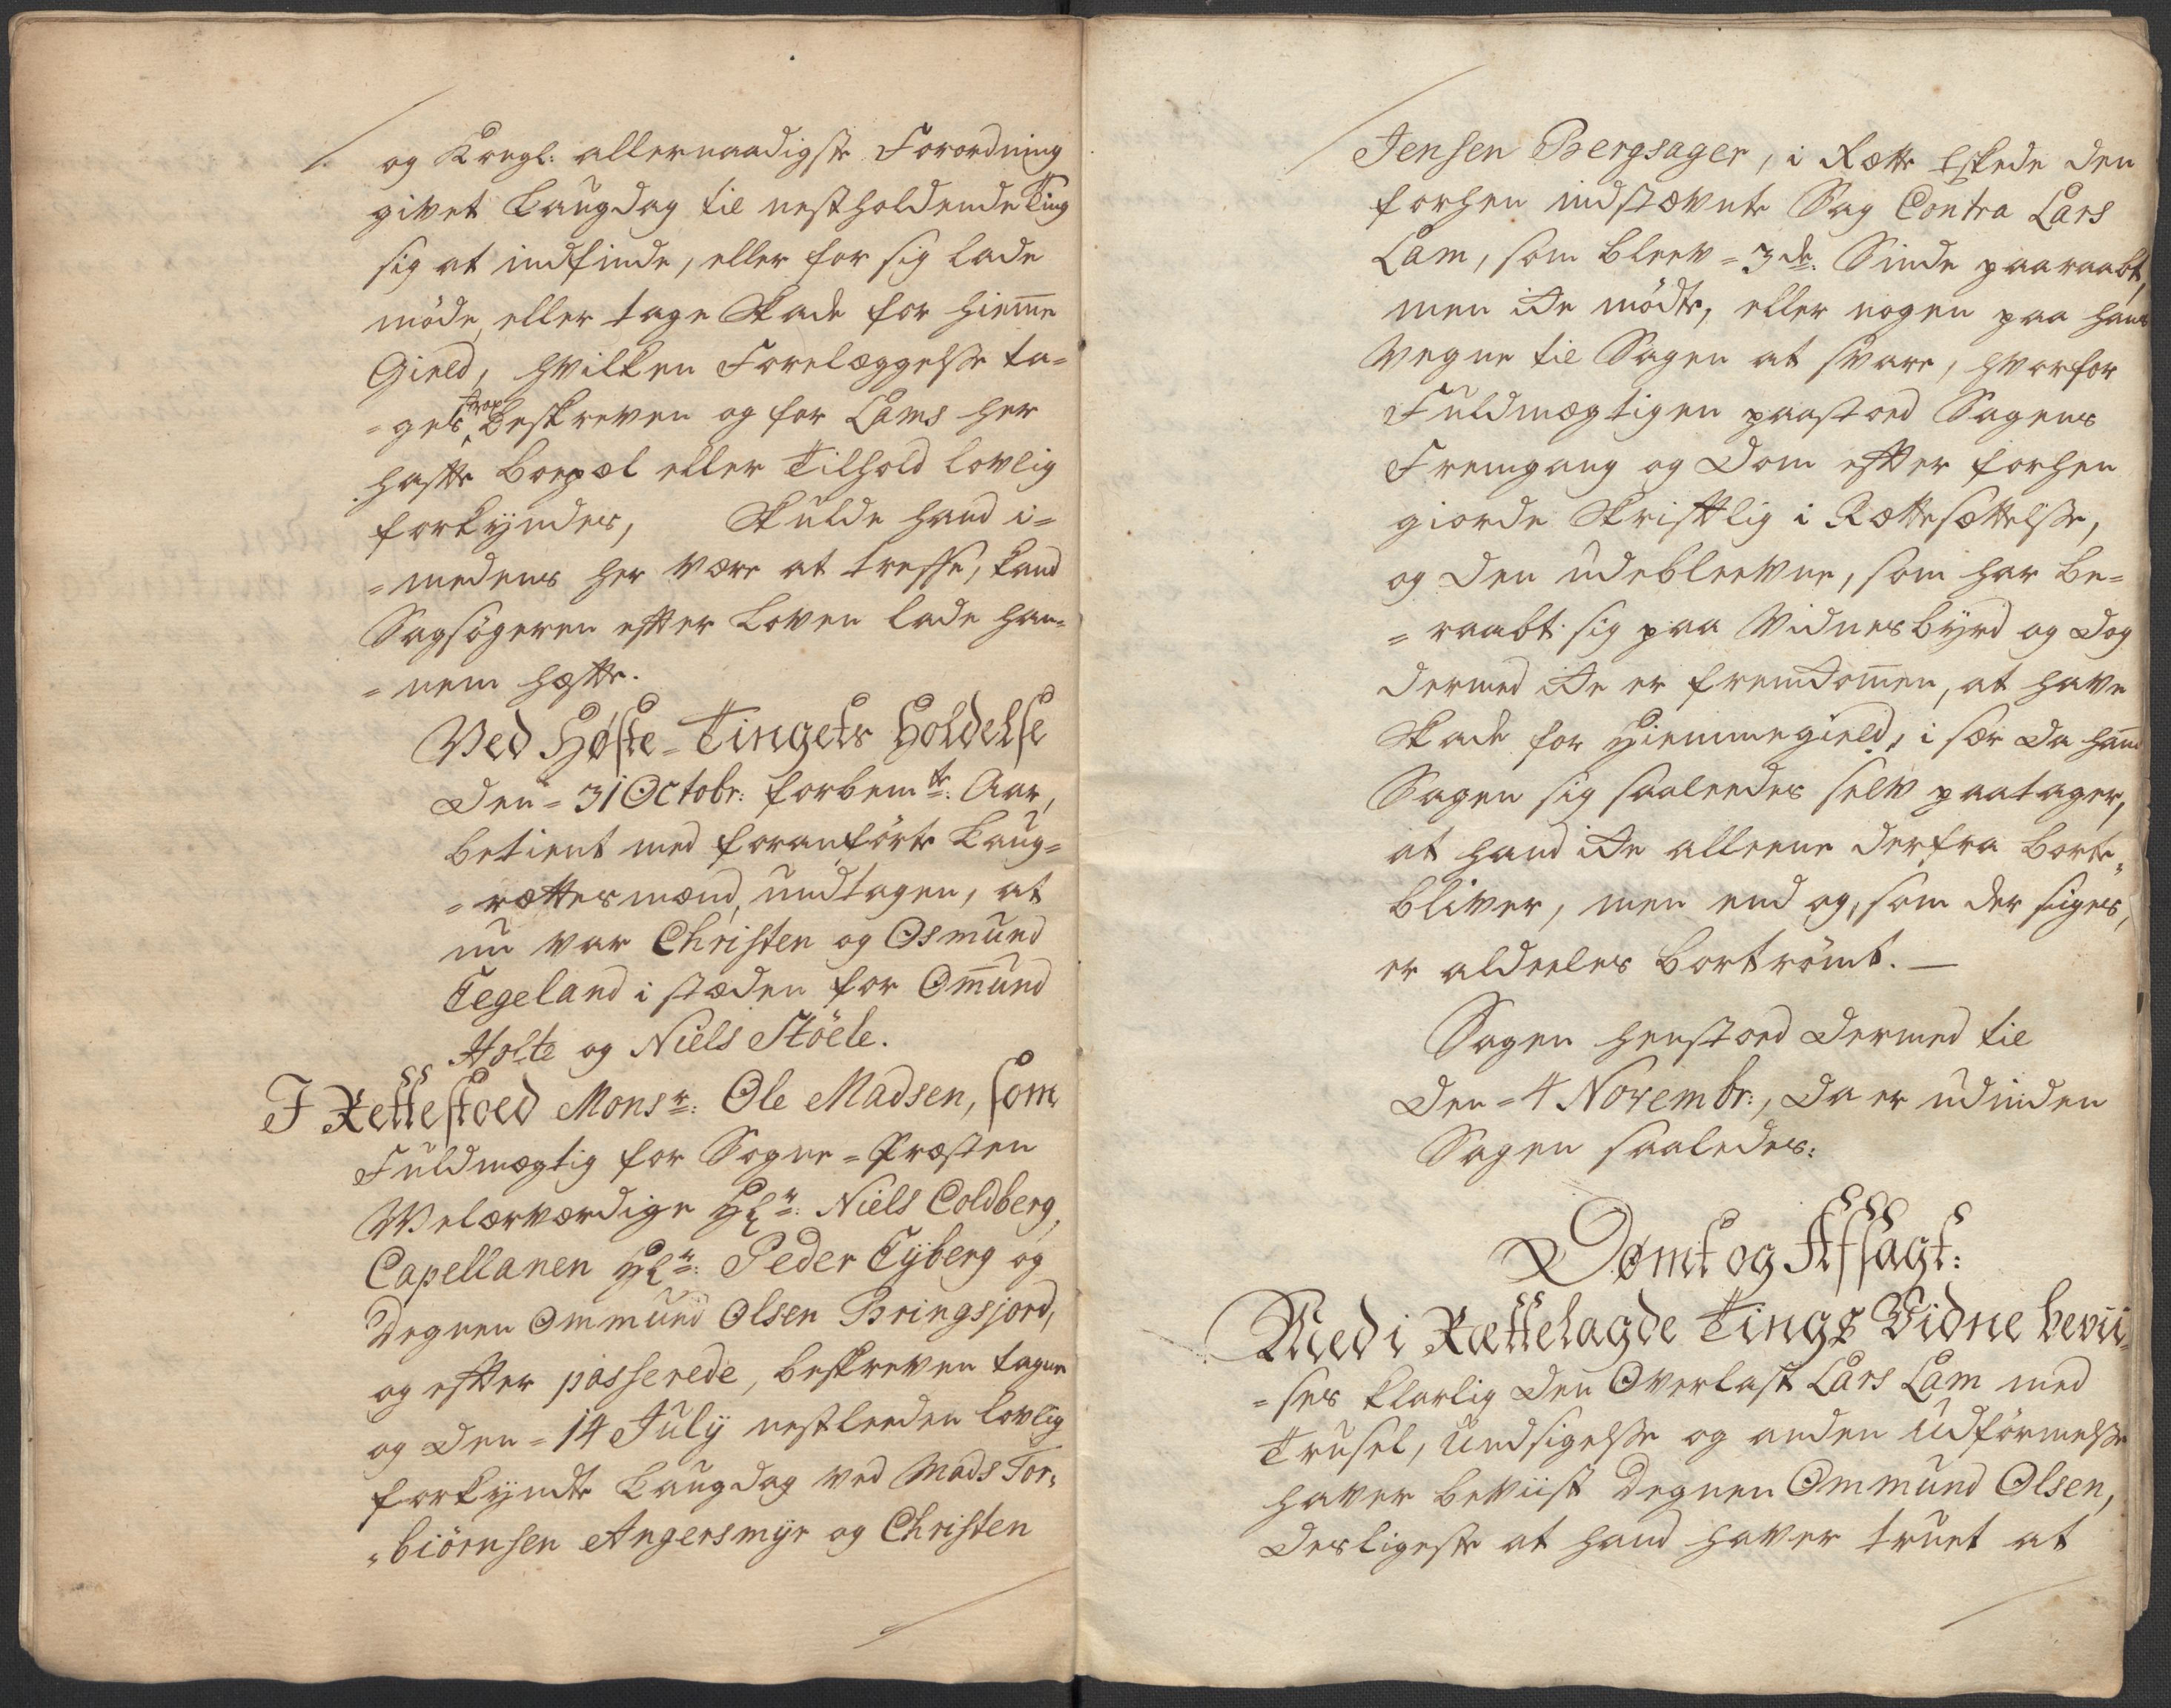 og Kongl: allernaadigste Forordning
givet Laugdag til nestholdende Ting
sig at indfinde, eller for sig lade
møde, eller tage Skade for hiem̅e
Gield, hvilken Forelæggelse ta-
=ges beskreven og for Lams her
hafte boepæl eller Tilhold lovlig
forkyndes, Skulde hand i=
=medens her være at treffe, kand
Sagsøgeren efter Loven lade han-
=nem hæfte.
Ved Høste-Tingets Holdelse
den = 31 Octobr: forbemte: Aar,
betient med foranførte Laug=
=rættesmænd, undtagen, at
nu var Christen og Osmund
Tegeland i stæden for Om̅und
Holte og Niels Støele.
I Rettestoed Monsr: Ole Madsen, som
Fuldmægtig for Sogne-Præsten
Velærværdige Hr: Niels Coldberg,
Capellanen Hr: Peder Tÿberg og
Degnen Ommund Olsen Bringsjord,
og efter passerede, beskreven tagne
og den = 14 Julÿ nestleeden lovlig
forkyndte Laugdag ved Mads Tor-
=biörnsen Angersmÿr og Christen
Jensen Bergsager, i Rætte Eskede den
forhen indstævnte Sag Contra Lars
Lam, som bleev = 3de: Sinde paaraabt,
men icke mødte, eller nogen paa hans
Vegne til Sagen at svare, hvorfor
Fuldmægtigen paastoed Sagens
Fremgang og Dom efter forhen
giorde Skriftlig i Rættesættelse,
og den udebleevne, som har be=
=raabt sig paa Vidnesbÿrd og dog
dermed icke er fremkom̅en, at have
Skade for Hiemmegield, i sær da hand
Sagen sig saaleedes selv paatager,
at hand icke alleene derfra borte-
bliver, men end og, som der siges,
er aldeeles bortrømt. —
Sagen henstoed dermed til
den = 4 Novembr:, da er udinden
Sagen saaledes:
Dømt og Afsagt:
Med i Rættelagde Tings Vidne bevii-
=ses klarlig den Overlast Lars Lam med
Trusel, Undsigelse og anden Udførmelse
haver beviist Degnen Ommund Olsen,
desligeste at hand haver truet at